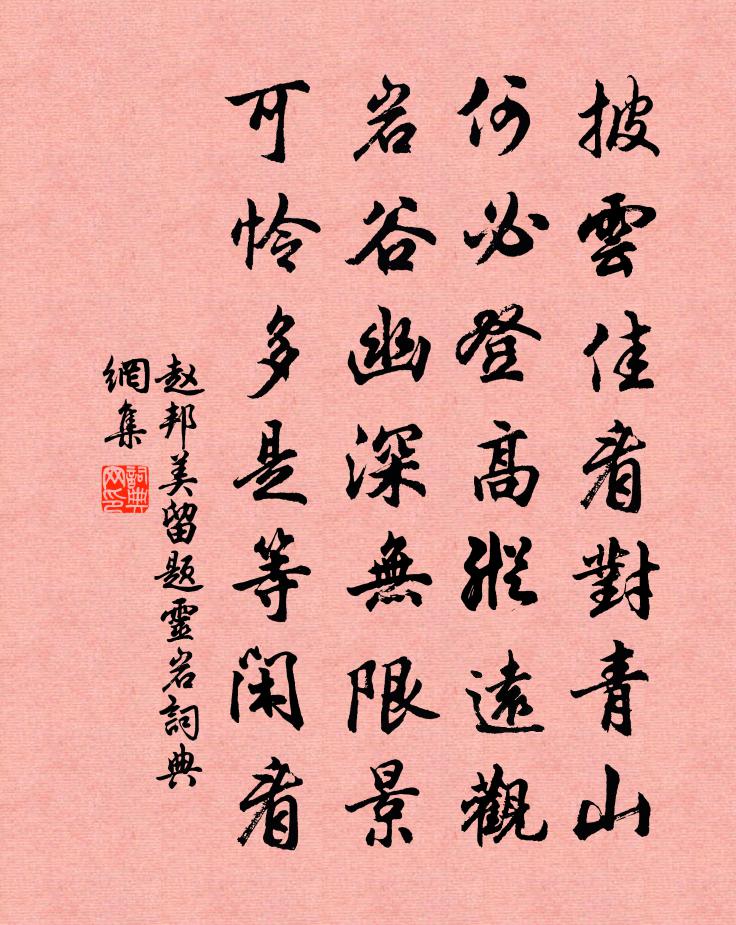 披雲佳看對青山
何必登高縱遠觀
岩谷幽深無限景
可怜多是等閑看
赵邦美留題靈岩詞典
網集
詞典
网印